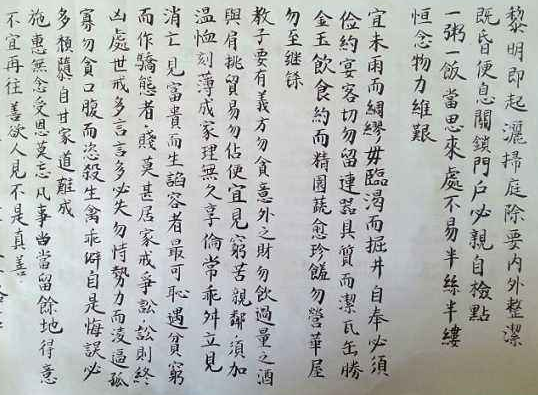 黎明即起灑掃庭除要内外整潔
既昏便息關鎖門户必親自檢點
一粥一飯當思來處不易半絲半縷
恒念物力維艱
宜未雨而綢繆毋臨渴而掘井自奉必須
儉約宴客切勿留連器具質而潔瓦缶勝
金玉飲食約而精園蔬愈珍饈勿營華屋
勿至
教子要有義方勿貪意外之財勿飲過量之酒
與肩挑貿易勿佔便宜見窮苦親鄰須加
温恤刻薄成家理無久享倫常乖舛立見
消亡見富貴而生諂容者最可恥遇貧窮
而作驕態者賤莫甚居家戒爭訟訟則終
凶處世戒多言言多必失勿恃勢力而凌逼孤
寡勿貪口腹而恣殺生禽乖僻自是悔誤必
多頹隳自甘家道難成
施惠無念受恩莫忘凡事當留餘地得意
不宜再往善欲人見不是真善